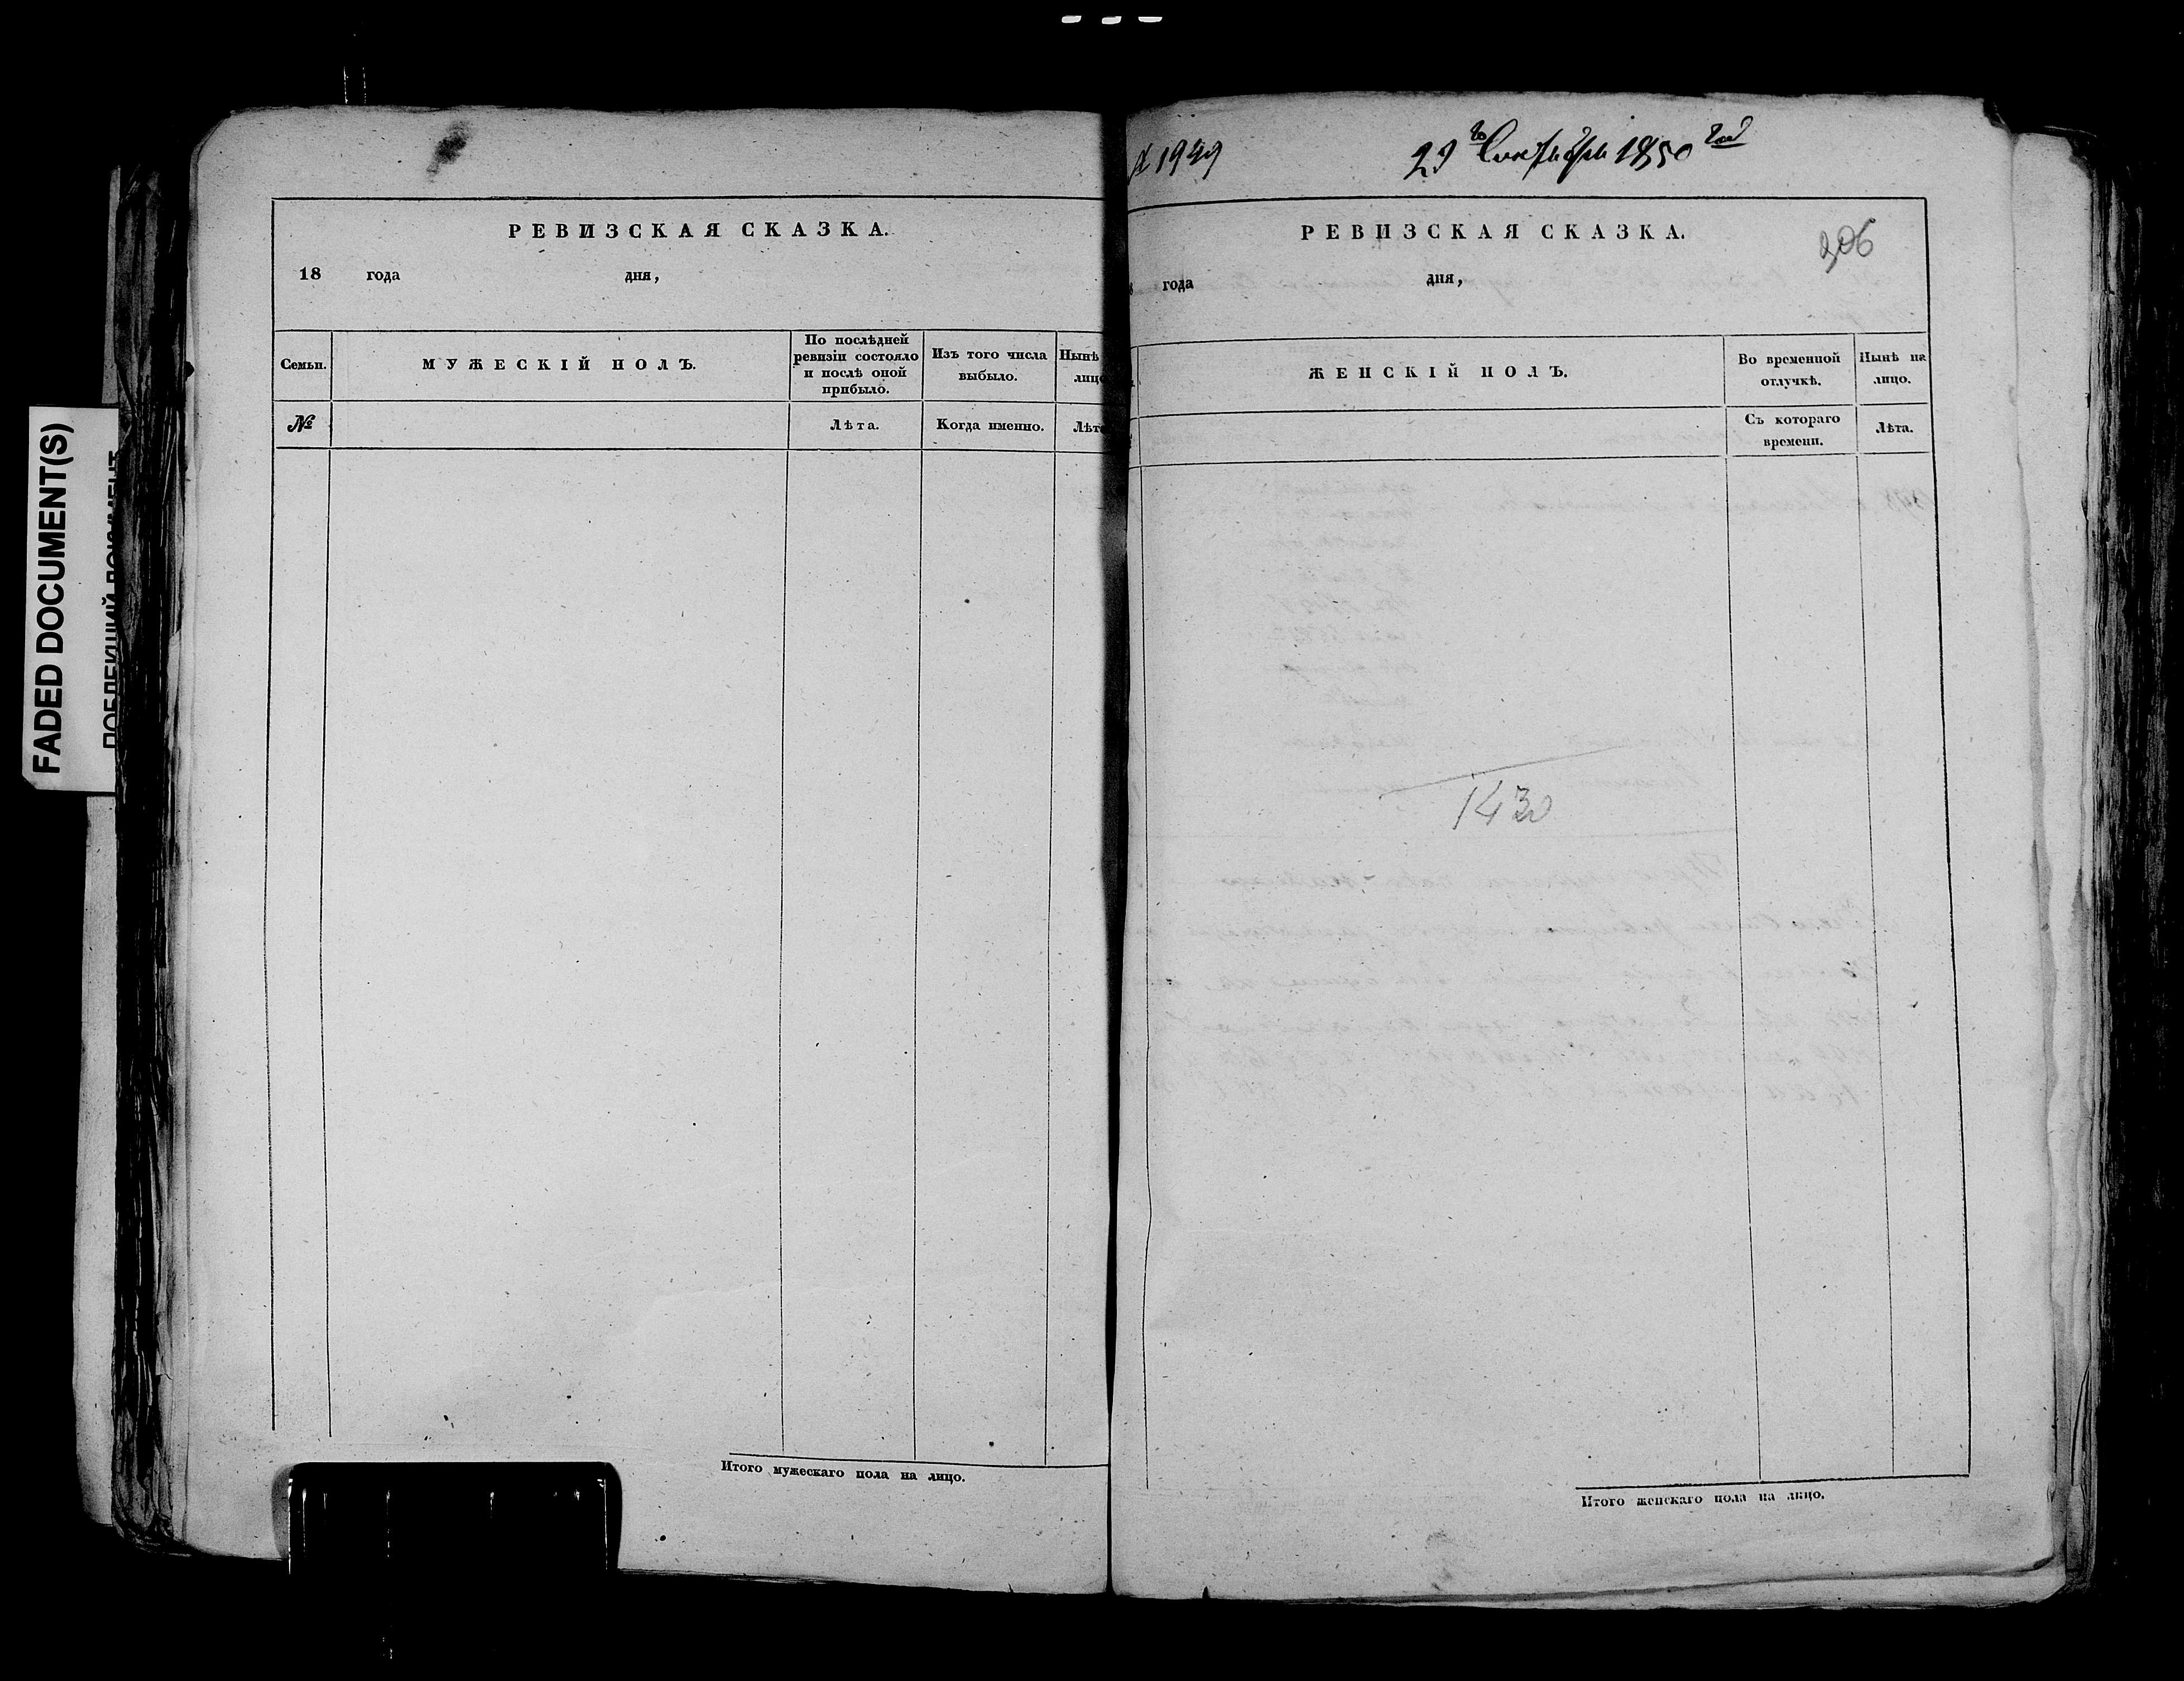 FADED DOCUMENT(S)
РЕВИЗСКАЯ СКАЗКА.
18 года дня,
Семьи.
МУЖЕСКІЙ ПОЛЪ.
По послѣдней
ревизіи состояло
и послѣ оной
прибыло.
Изъ того числа
выбыло.
Нынѣ
лицо
№
Лѣта.
Когда именно.
Лѣта
Итого мужескаго пола на лицо.
1949
23 го Сентября 1850 год
РЕВИЗСКАЯ СКАЗКА.
306
года дня,
ЖЕНСКІЙ ПОЛЪ.
Во временной
отлучкѣ.
Нынѣ на
лицо.
Съ котораго
времени.
Лѣта.
1430
Итого женскаго пола на лицо.